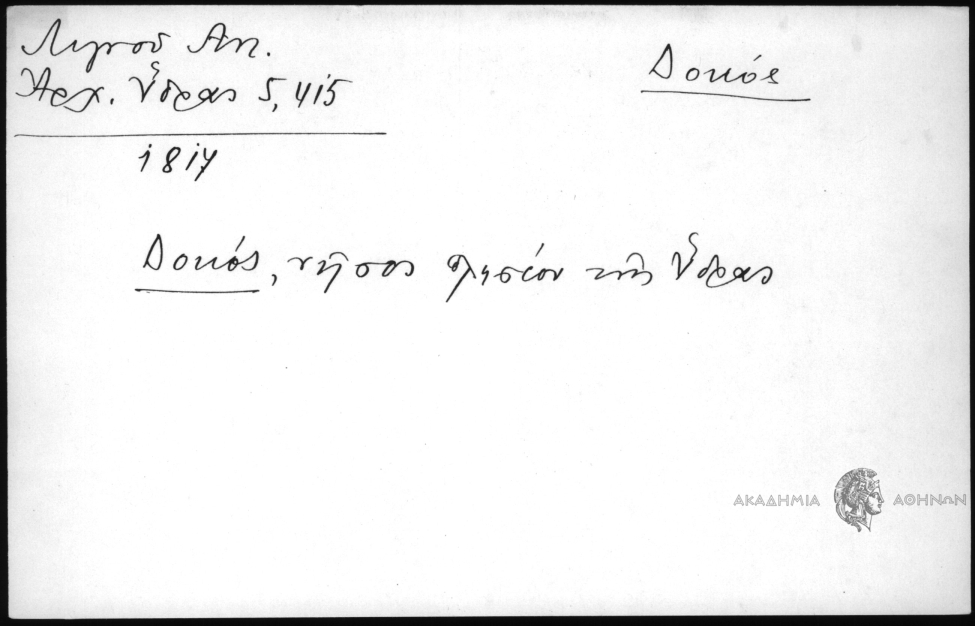 Λιγνοῦ Αντ.
Ἀρχ. Ὕδρας 5, 415
Δοκός
1817
Δοκός, νῆσος πλησίον τῆς Ὕδρας
ΑΚΑΔΗΜΙΑ ΑΘΗΝΩΝ